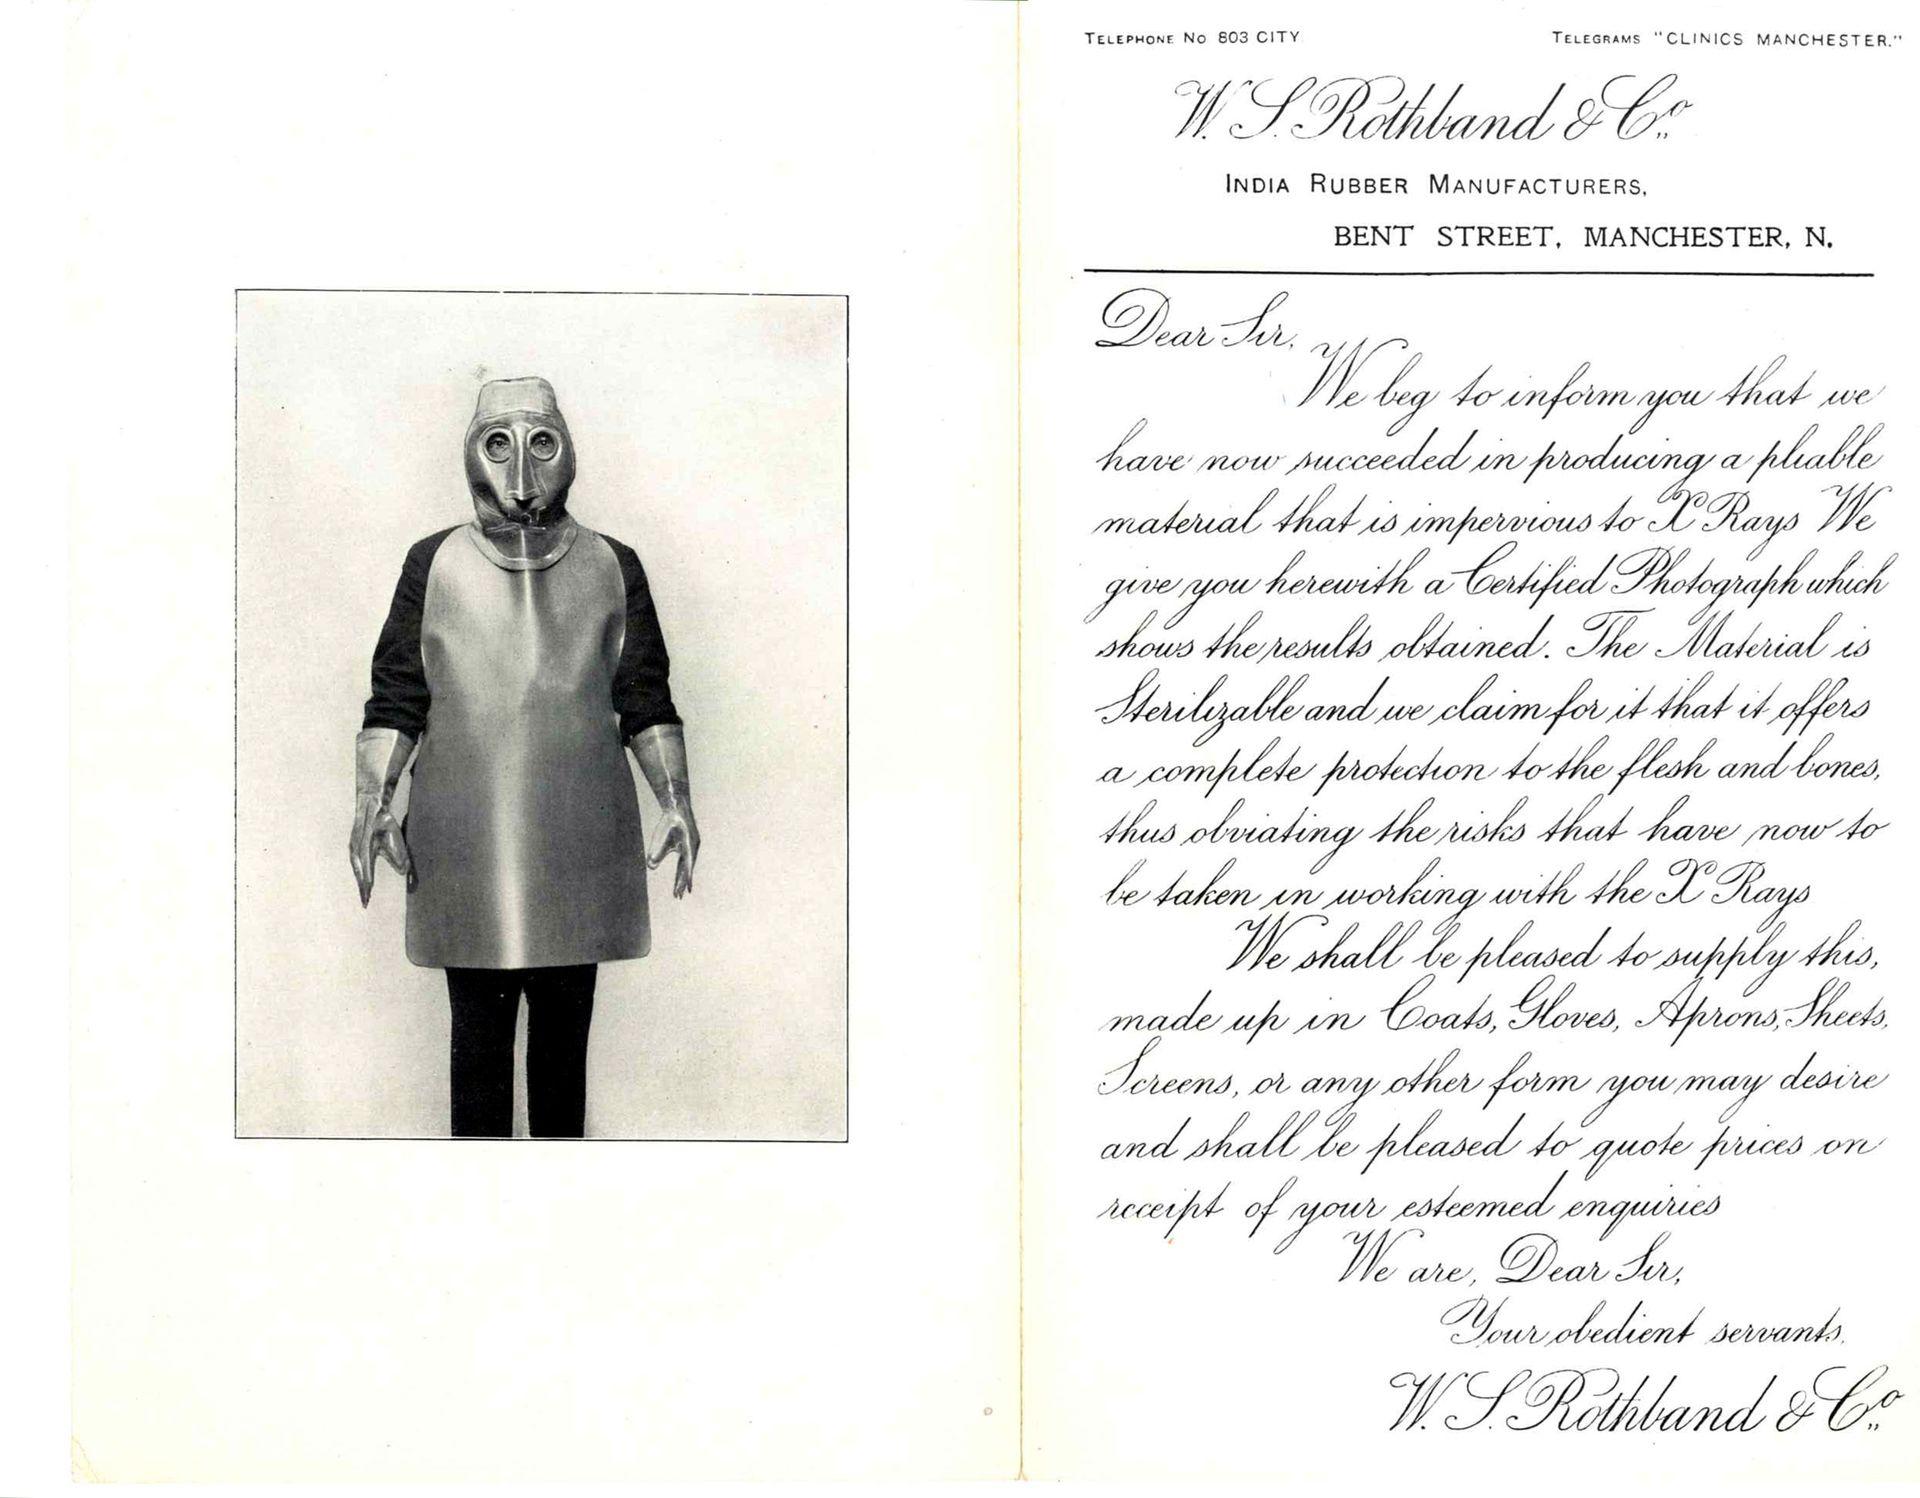 TELEPHONE NO 803 CITY
TELEGRAMS "CLINICS MANCHESTER."
W. S. Rothband & Co.
INDIA RUBBER MANUFACTURERS,
BENT STREET, MANCHESTER, N.
Dear Sir,
We beg to inform you that we
have now succeeded in producing a pliable
material that is impervious to X Rays We
give you herewith a Certified Photograph which
shows the results obtained. The Material is
Sterilizable and we claim for it that it offers
a complete protection to the flesh and bones,
thus obviating the risks that have now to
be taken in working with the X Rays
We shall be pleased to supply this,
made up in Coats, Gloves, Aprons, Sheets,
Screens, or any other form you may desire
and shall be pleased to quote prices on
receipt of your esteemed enquiries
We are, Dear Sir,
Your obedient servants.
W. S. Rothband & Co.